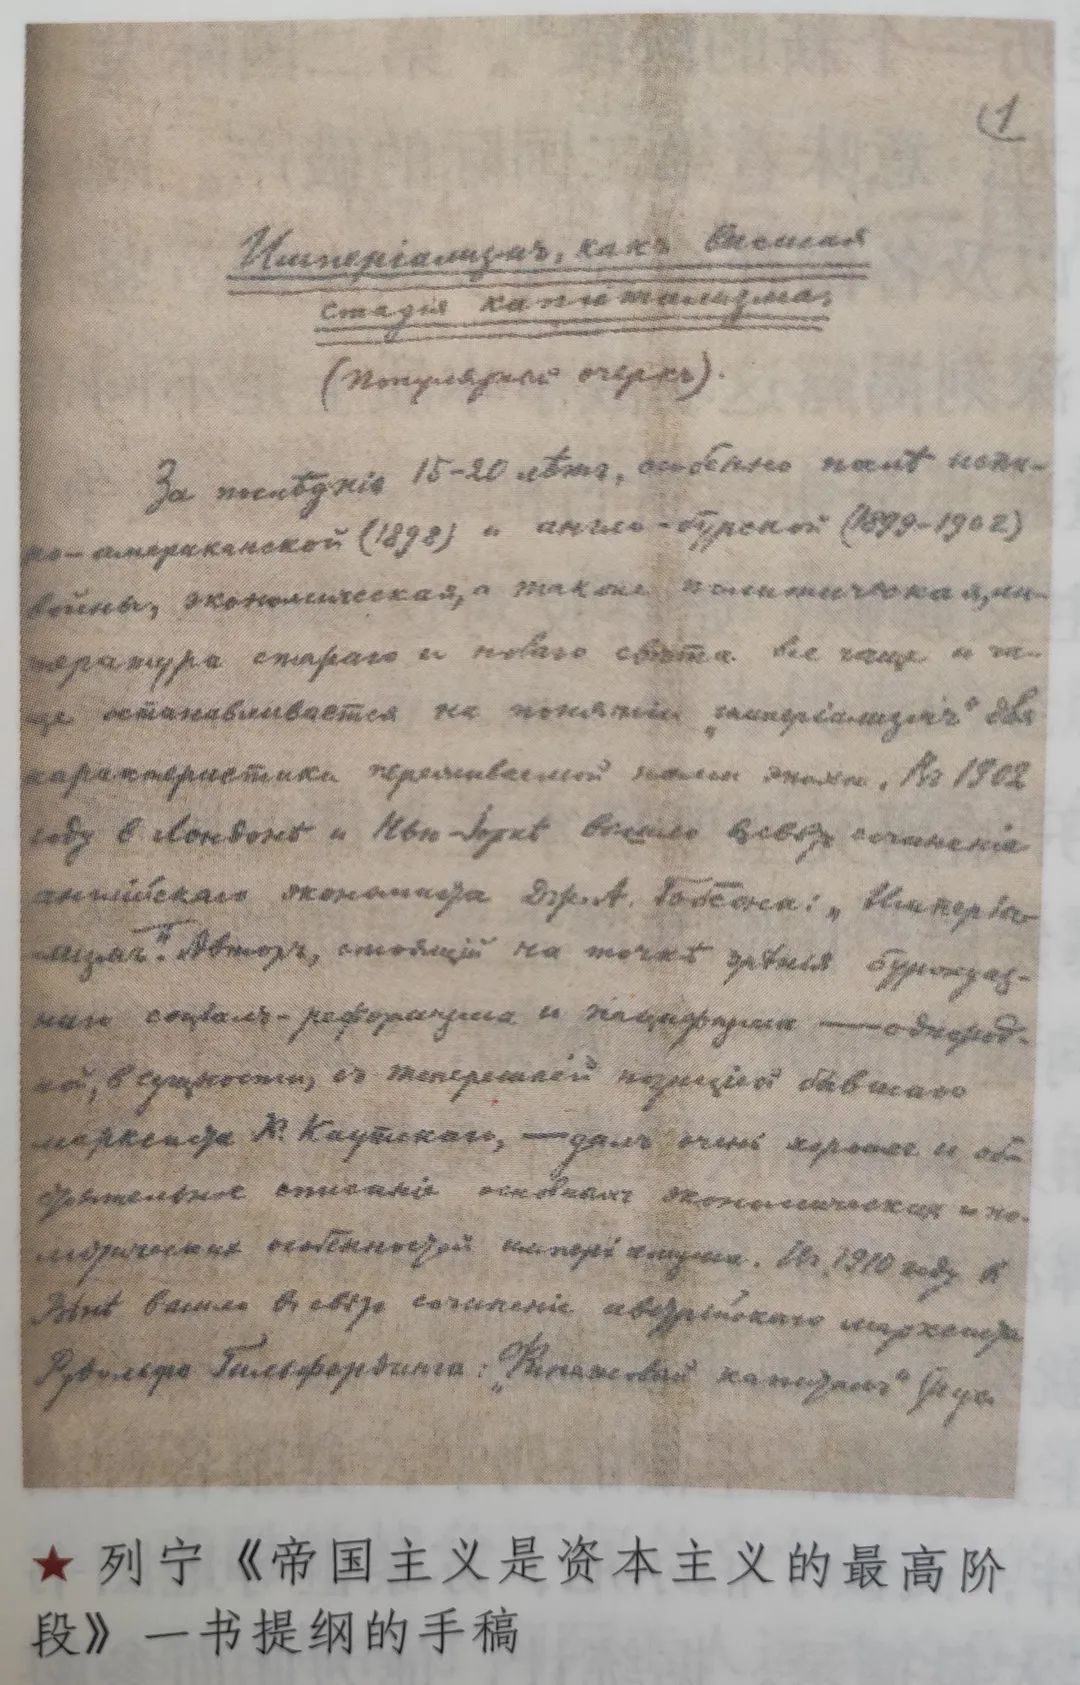 1
Имперіализмъ, какъ высшая
стадія капитализма.
(Популярный очеркъ).
За послѣднія 15-20 лѣтъ, особенно послѣ испа-
но-американской (1898) и англо-бурской (1899-1902)
войны, экономическая, а также политическая, ли-
тература стараго и новаго свѣта все чаще и ча-
ще останавливается на понятіи „имперіализмъ" для
характеристики переживаемой нами эпохи. Въ 1902
году в Лондонѣ и Нью-Іоркѣ вышло въ свѣтъ сочиненіе
англійскаго экономиста Дж. А. Гобсона: „Имперіа-
лизмъ". Авторъ, стоящій на точкѣ зрѣнія буржуаз-
наго соціалъ-реформизма и пацифизма — однород-
ной, в сущности, съ теперешней позиціей бывшаго
марксиста К. Каутскаго, — далъ очень хорошее и обс
тоятельное описаніе основныхъ экономическихъ и по-
литическихъ особенностей имперіализма. Въ 1910 году в
Вѣнѣ вышло въ свѣтъ сочиненіе австрійскаго марксиста
Рудольфа Гильфердинга: „Финансовый капиталъ" (рус.
★ 列宁《帝国主义是资本主义的最高阶
段》一书提纲的手稿